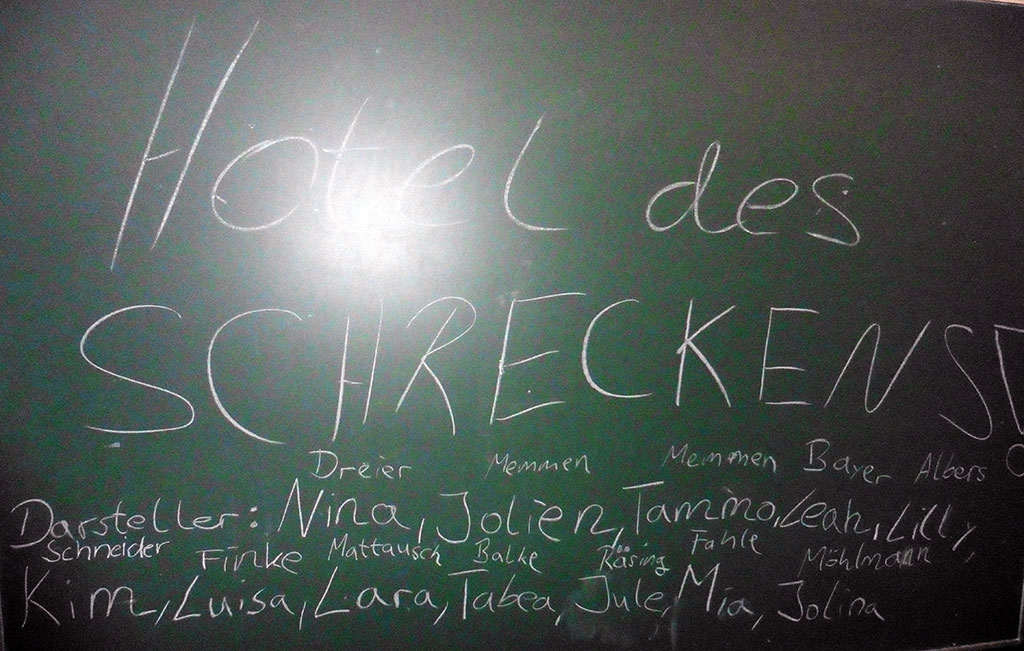 Hotel des
SCHRECKENS!
Dreier Memmen Memmen Bayer Albers
Darsteller: Nina, Jolien, Tammo, Leah, Lilly,
Schneider Finke Mattausch Balke Räsing Fahle Möhlmann
Kim, Luisa, Lara, Tabea, Jule, Mia, Jolina